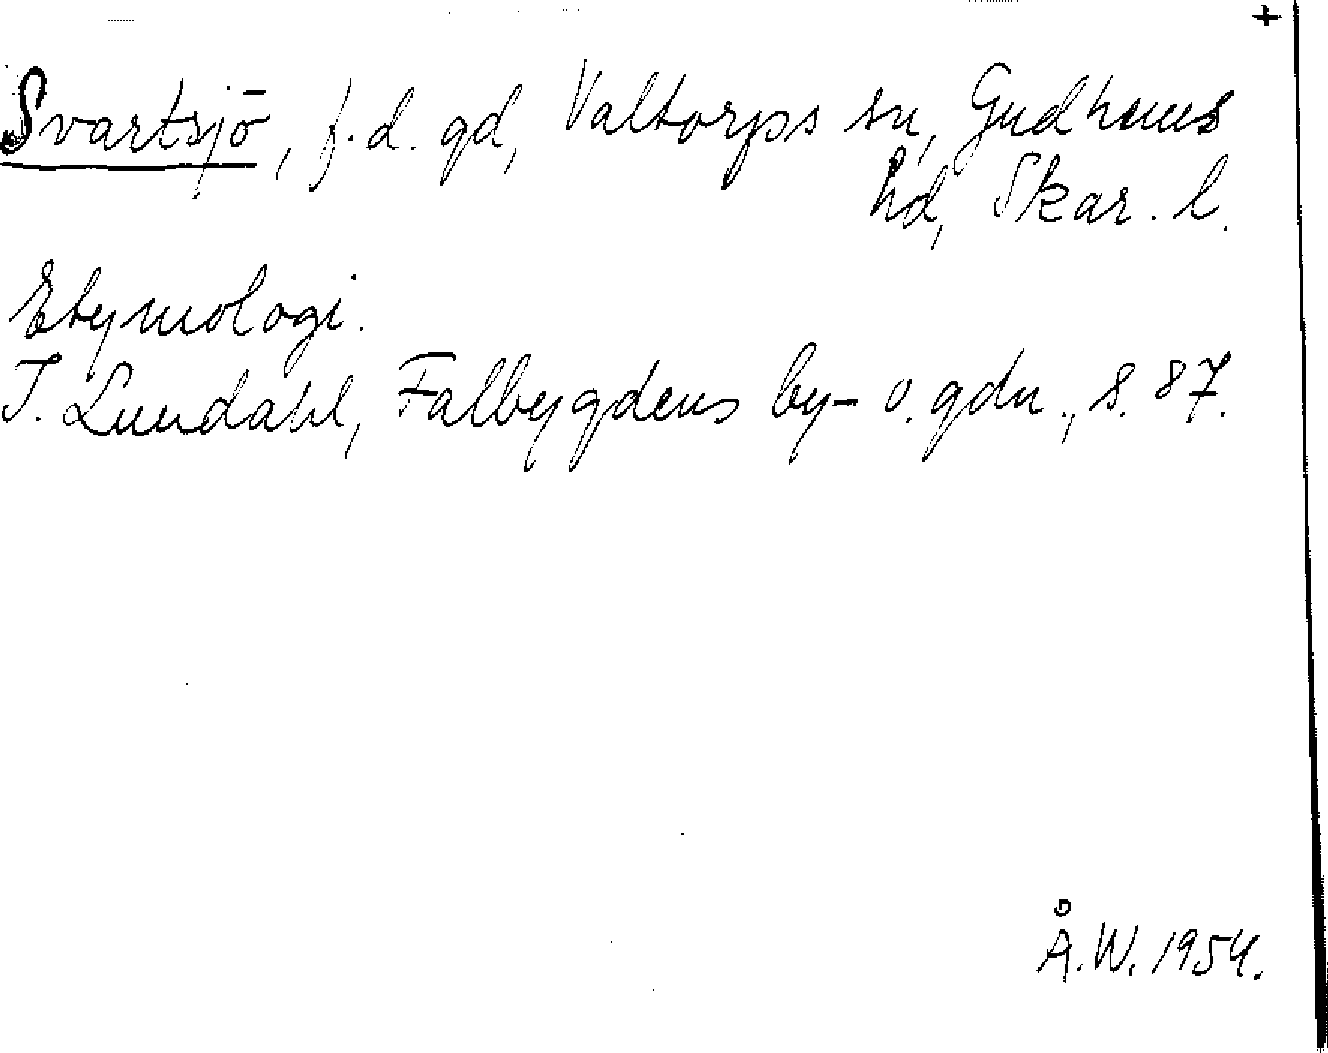 +
Svartsjö, f.d. gd, Valtorps sn, Gudhems
hd, Skar. l.
Etymologi.
I. Lundahl, Falbygdens by- o. gdn., s. 87.
Å.W. 1954.